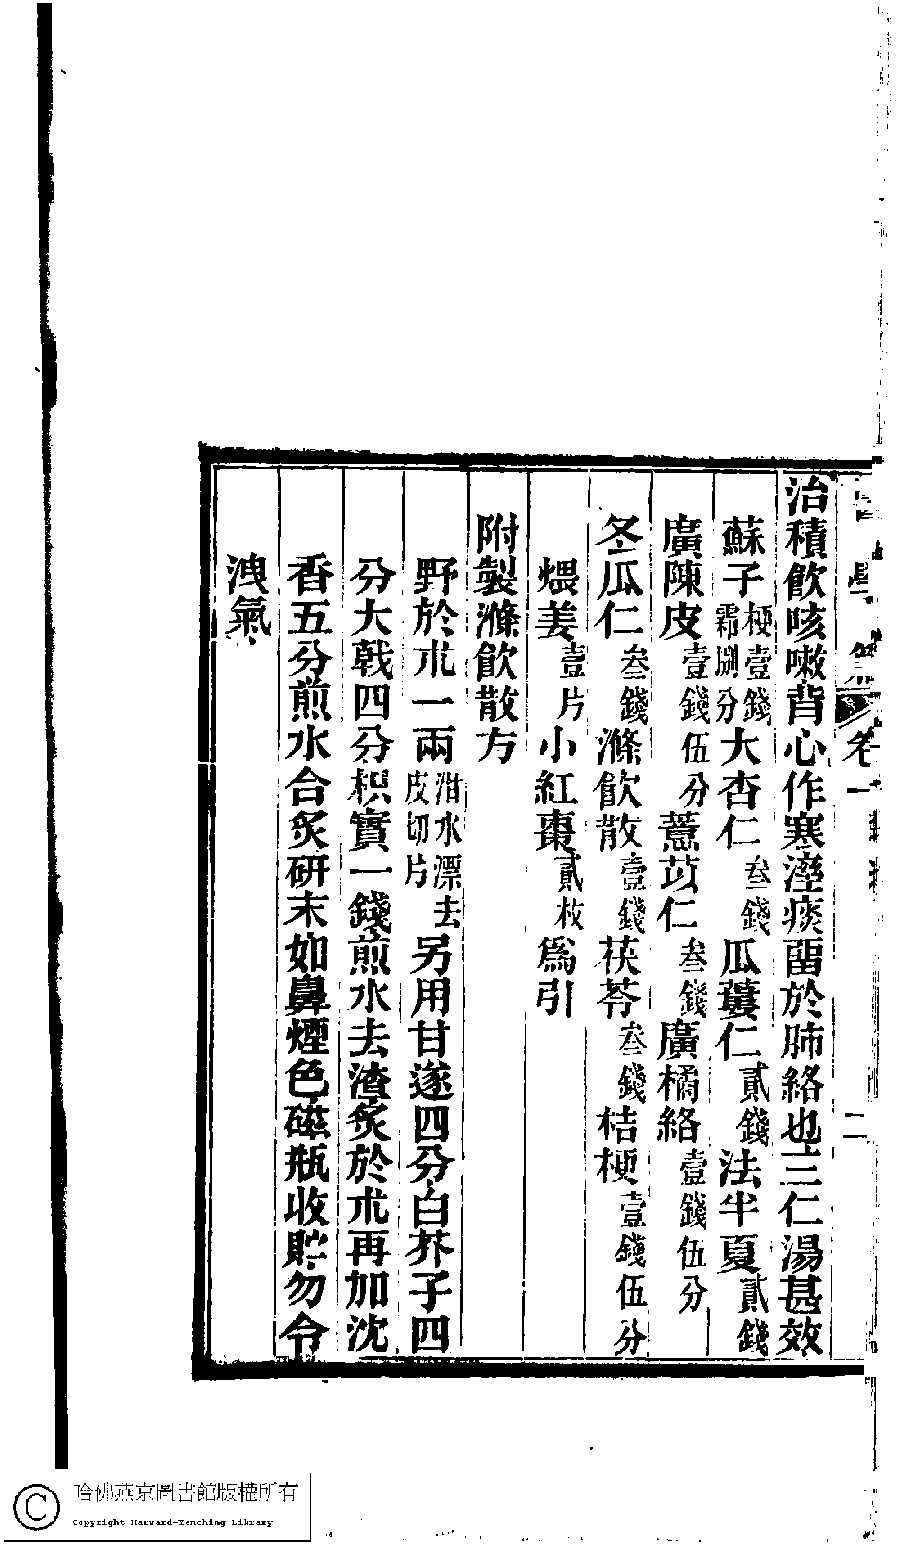 卷一
二
治積飲咳嗽背心作寒溼痰畱於肺絡也三仁湯甚效
蘇子梗壹錢霜捌分大杏仁叁錢瓜蔞仁貳錢法半夏貳錢
廣陳皮壹錢伍分薏苡仁叁錢廣橘絡壹錢伍分
冬瓜仁叁錢滌飲散壹錢茯苓叁錢桔梗壹錢伍分
煨姜壹片小紅棗貳枚爲引
附製滌飲散方
野於朮一兩泔水漂去皮切片另用甘遂四分白芥子四
分大戟四分枳實一錢煎水去渣炙於朮再加沈
香五分煎水合炙研末如鼻煙色磁瓶收貯勿令
洩氣
哈佛燕京圖書館版權所有
Copyright Harvard-Yenching Library